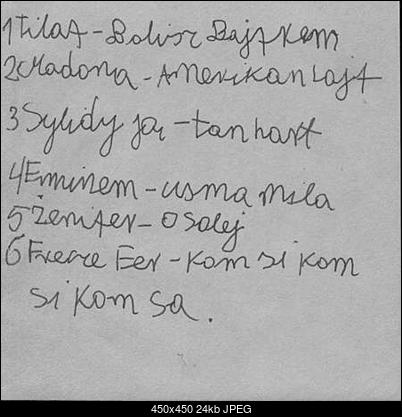 1 Tilaf - Bolisr Bajt kem
2 Madona - Amerikan lajf
3 Sylidy jaj - tan hart
4 Eminem - usma mila
5 Ženifer - O solej
6 Freere Fer - kom si kom
si kom sa.
450x450 24kb JPEG